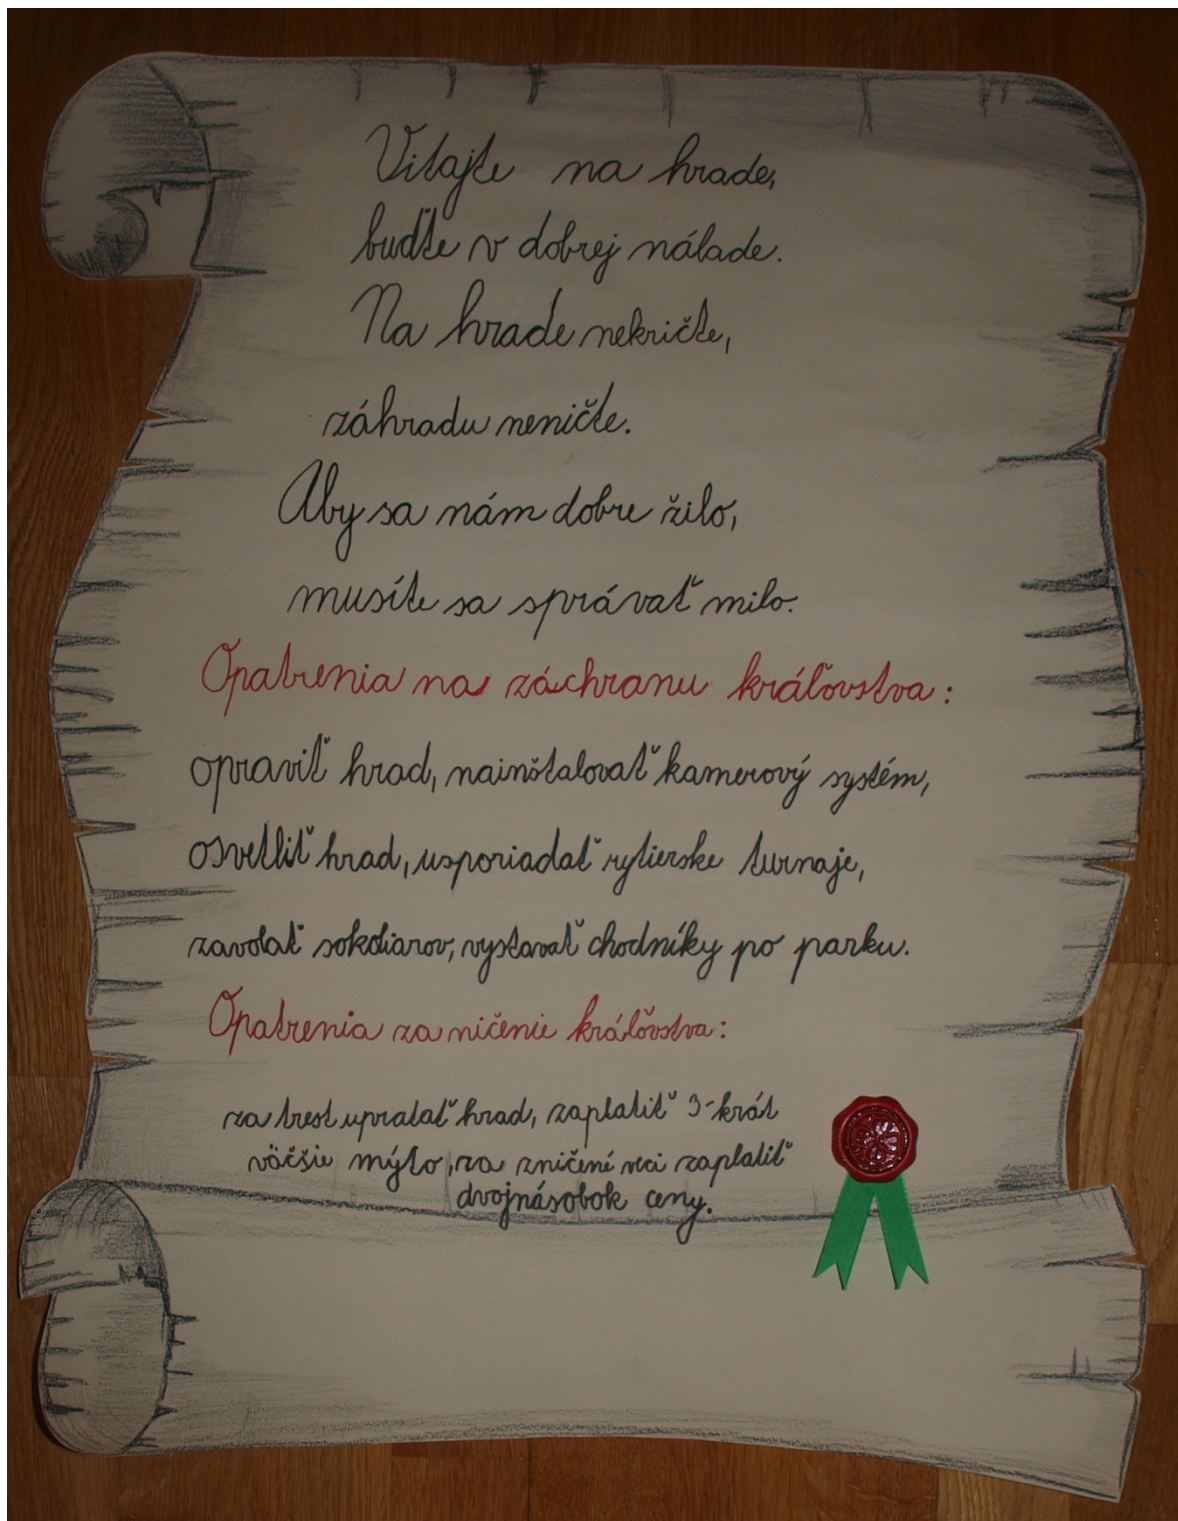 Vitajte na hrade,
buďte v dobrej nálade.
Na hrade nekričte,
záhradu neničte.
Aby sa nám dobre žilo,
musíte sa správať milo.
Opatrenia na záchranu kráľovstva:
opraviť hrad, nainštalovať kamerový systém,
osvetliť hrad, usporiadať rytierske turnaje,
zavolať sokoliarov, vystavať chodníky po parku.
Opatrenia za ničenie kráľovstva:
za trest upratať hrad, zaplatiť 3-krát
väčšie mýto, za zničené veci zaplatiť
dvojnásobok ceny.